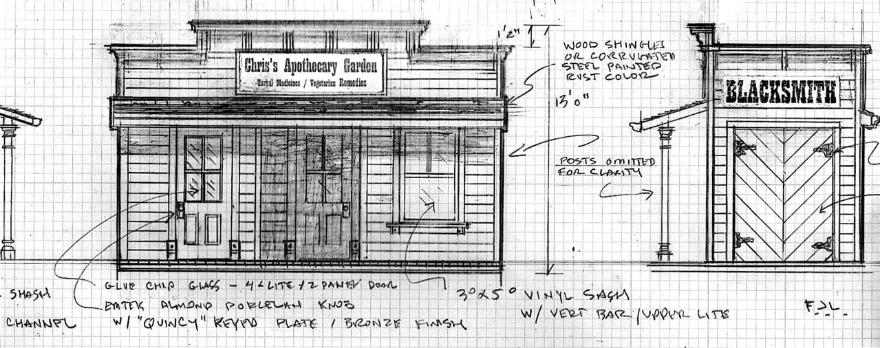 1'2"
Chris's Apothecary Garden
Herbal Medicines / Vegetarian Remedies
WOOD SHINGLES
OR CORRUGATED
STEEL PAINTED
RUST COLOR
13'0"
BLACKSMITH
POSTS OMITTED
FOR CLARITY
SHASH
CHANNEL
GLUE CHIP GLASS - 4 LITE / 2 PANEL DOOR
ALMOND PORCELAIN KNOB
W/ "QUINCY" KEYED PLATE / BRONZE FINISH
3°x5° VINYL SASH
W/ VERT BAR / UPPER LITE